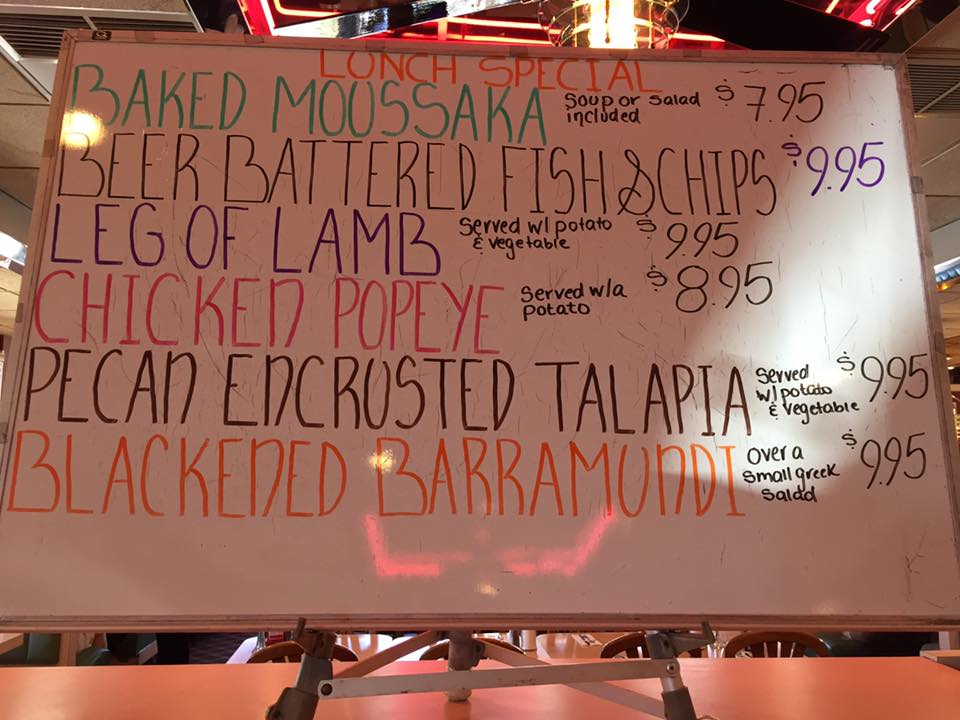 LUNCH SPECIAL
BAKED MOUSSAKA Soup or Salad included $7.95
BEER BATTERED FISH & CHIPS $9.95
LEG OF LAMB Served w/ potato & vegetable $9.95
CHICKEN POPEYE Served w/a potato $8.95
PECAN ENCRUSTED TALAPIA Served w/ potato & vegetable $9.95
BLACKENED BARRAMUNDI over a small greek salad $9.95